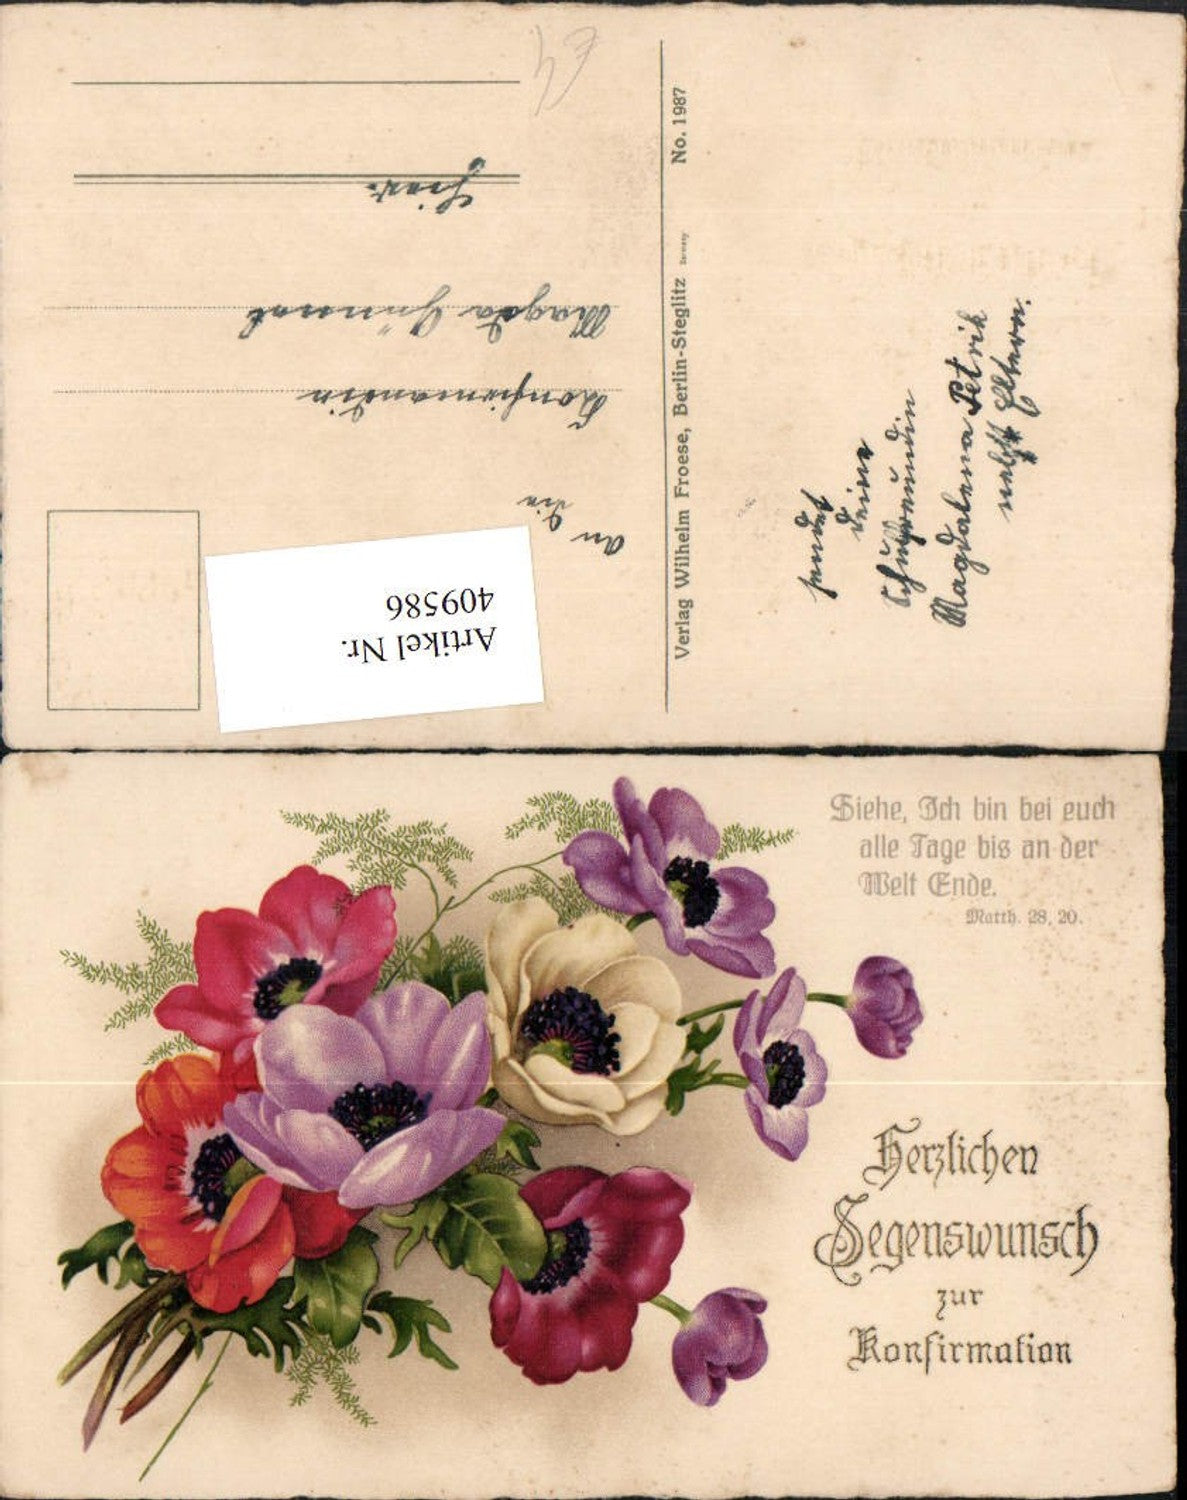 An Die
Konfirmandin
Magda Grünert
Hier.
Artikel Nr.
409586
Verlag Wilhelm Froese, Berlin-Steglitz Germany No. 1987
sendet
deine
Schulfreundin
Magdalena Petrik
nebst Eltern.
Siehe, Ich bin bei euch
alle Tage bis an der
Welt Ende.
Matth. 28, 20.
Herzlichen
Segenswunsch
zur
Konfirmation